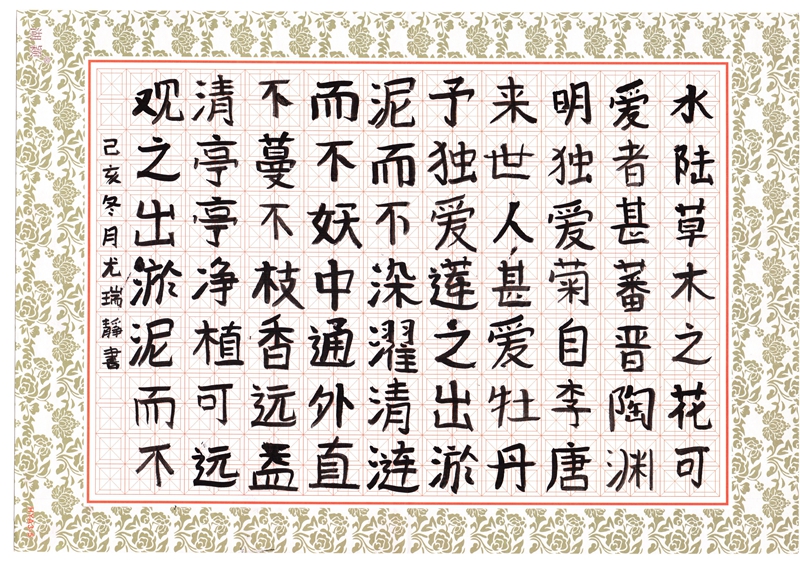 水陆草木之花可
爱者甚蕃晋陶渊
明独爱菊自李唐
来世人甚爱牡丹
予独爱蓮之出淤
泥而不染濯清涟
而不妖中通外直
不蔓不枝香远益
清亭亭净植可远
观之出淤泥而不
己亥冬月尤瑞靜書